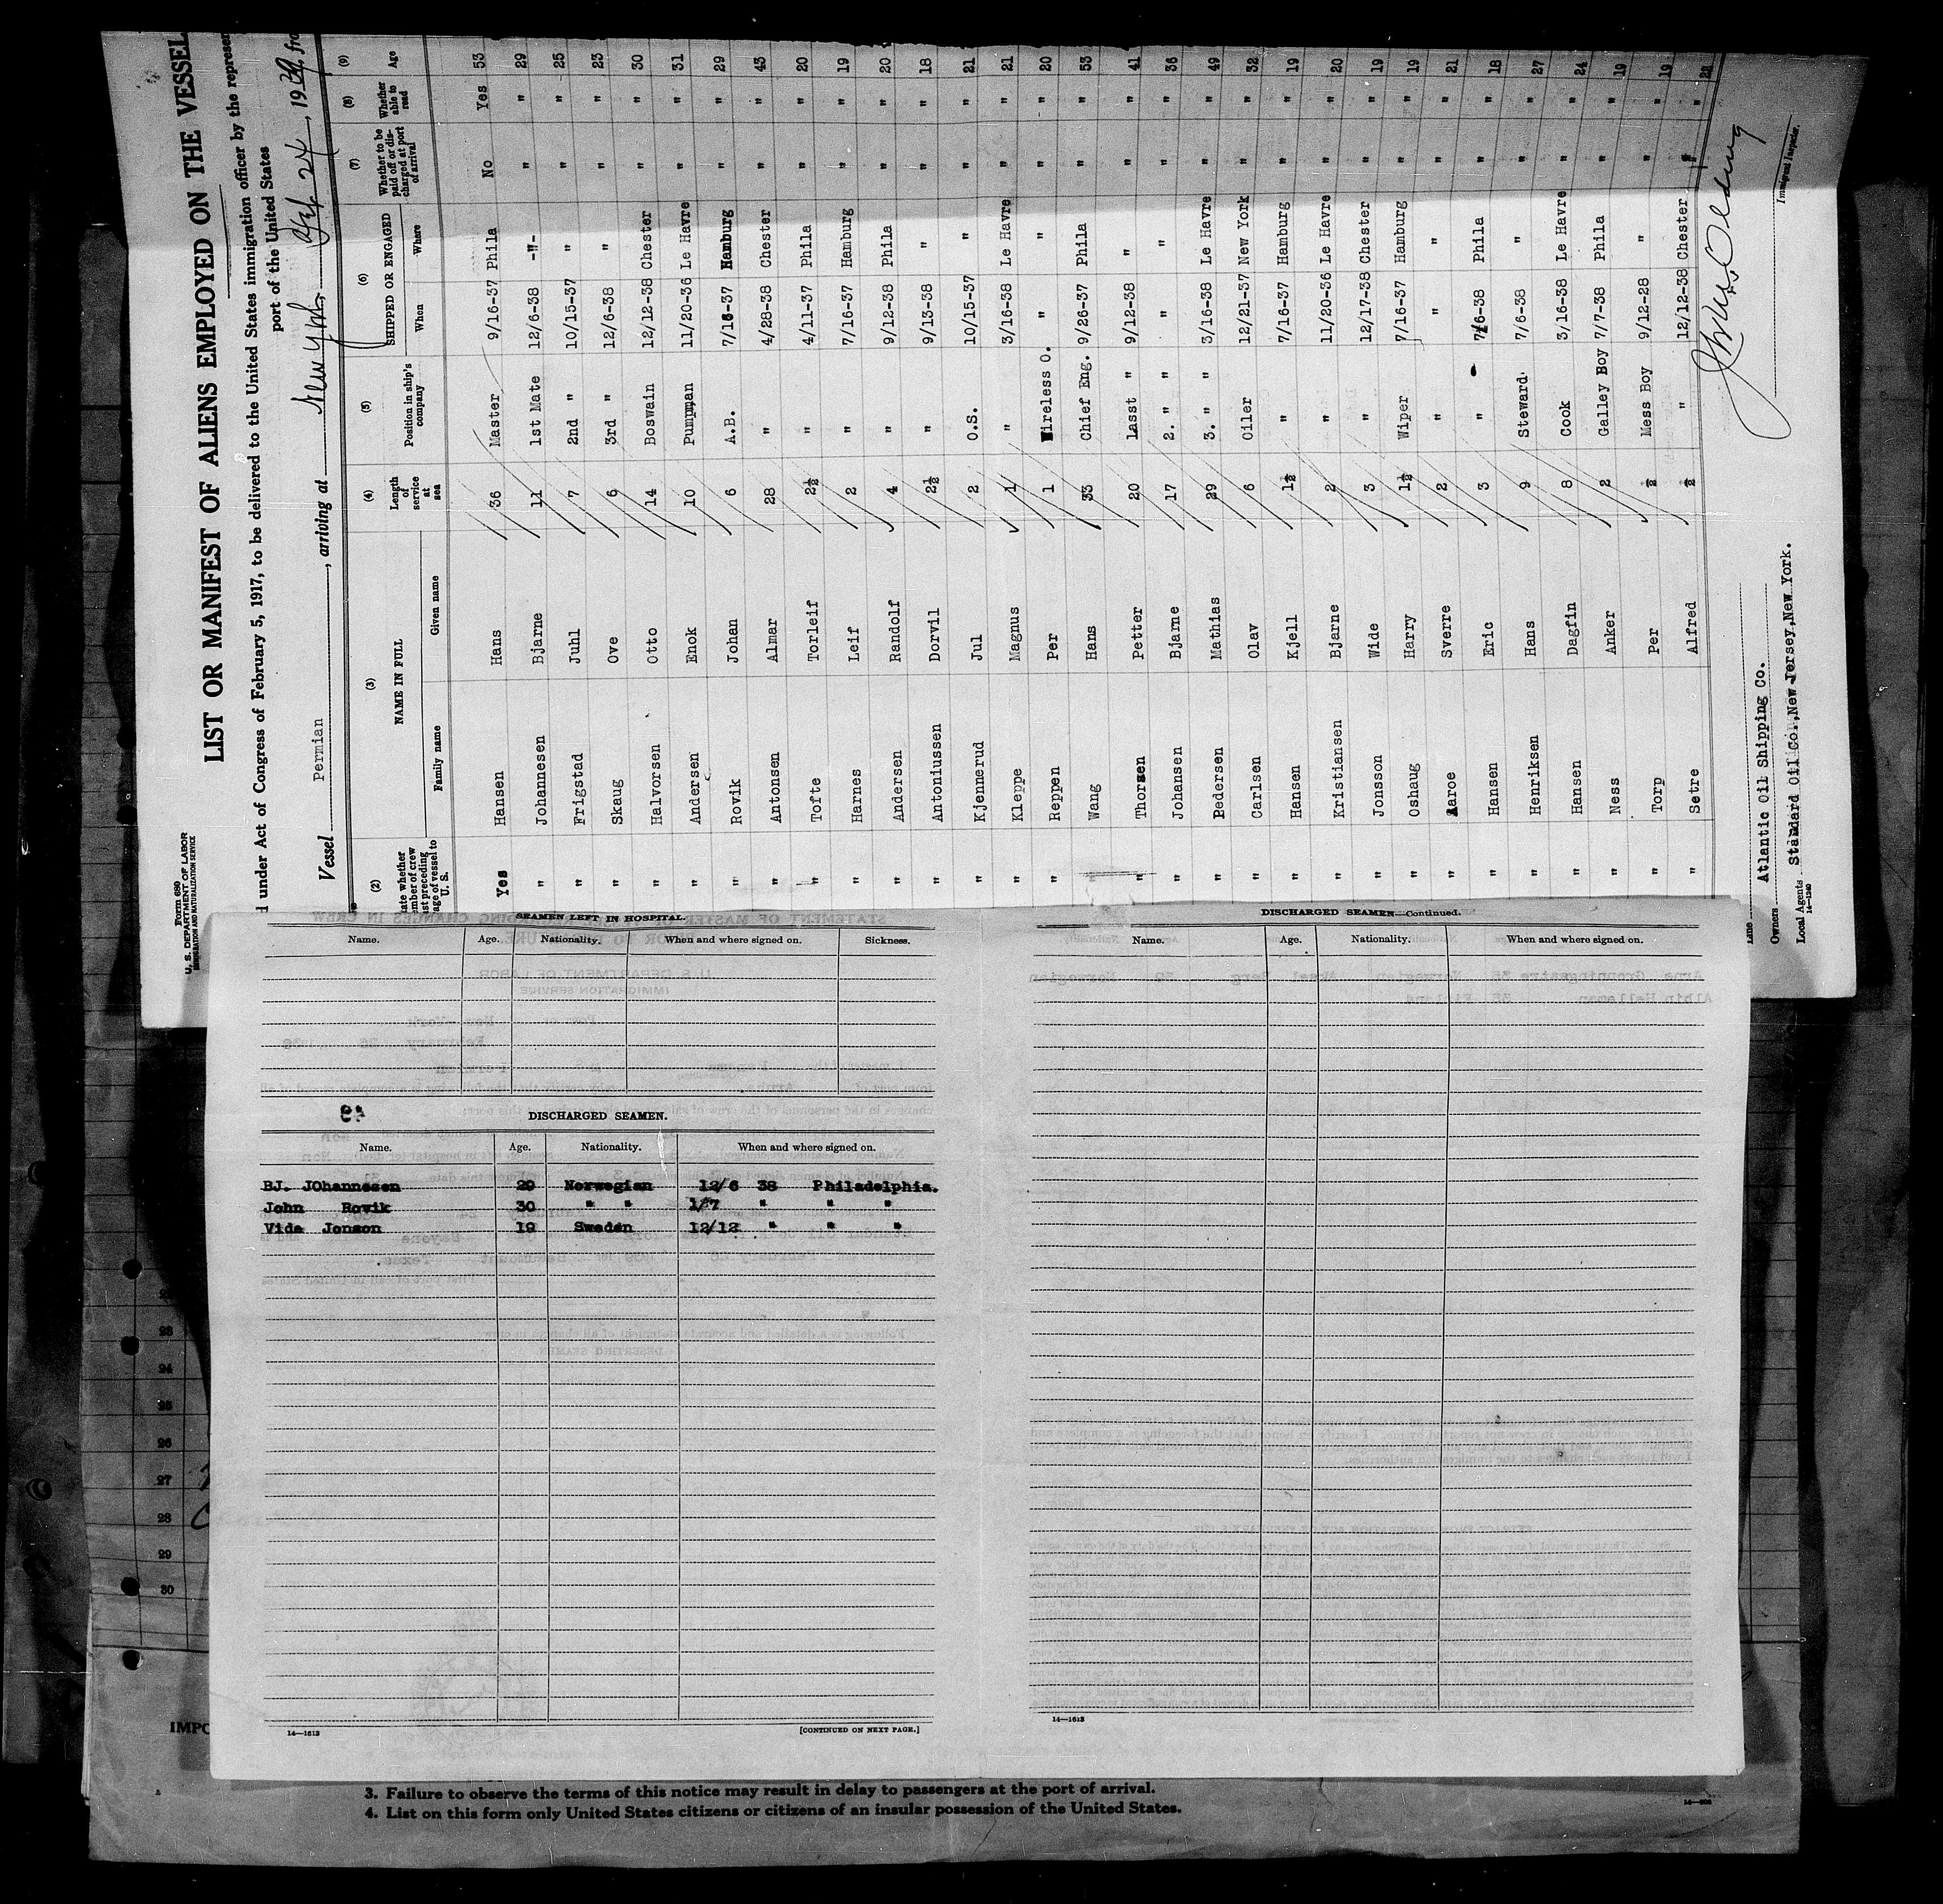 Form 680
U. S. DEPARTMENT OF LABOR
IMMIGRATION AND NATURALIZATION SERVICE
LIST OR MANIFEST OF ALIENS EMPLOYED ON THE VESSEL
d under Act of Congress of February 5, 1917, to be delivered to the United States immigration officer by the represen
port of the United States
Vessel Permian , arriving at New York , 1939, fro
(2) (3) (4) (5) (6) (7) (8) (9)
ate whether mber of crew st preceding age of vessel to U. S. NAME IN FULL Length of service at sea Position in ship's company SHIPPED OR ENGAGED Whether to be paid off or discharged at port of arrival Whether able to read Age
Family name Given name When Where
Yes Hansen Hans 36 Master 9/16-37 Phila No Yes 53
" Johannesen Bjarne 11 1st Mate 12/6-38 -"- " " 29
" Frigstad Juhl 7 2nd " 10/15-37 " " " 25
" Skaug Ove 6 3rd " 12/6-38 " " " 23
" Halvorsen Otto 14 Boswain 12/12-38 Chester " " 30
" Andersen Enok 10 Pumpman 11/20-36 Le Havre " " 31
" Rovik Johan 6 A.B. 7/16-37 Hamburg " " 29
" Antonsen Almar 28 " 4/28-38 Chester " " 43
" Tofte Torleif 2½ " 4/11-37 Phila " " 20
" Harnes Leif 2 " 7/16-37 Hamburg " " 19
" Andersen Randolf 4 " 9/12-38 Phila " " 20
" Antoniussen Dorvil 2½ " 9/13-38 " " " 18
" Kjennerud Jul 2 O.S. 10/15-37 " " " 21
" Kleppe Magnus 1 " 3/16-38 Le Havre " " 21
" Reppen Per 1 Wireless O. " " " " 20
Wang Hans 33 Chief Eng. 9/26-37 Phila " " 53
" Thorsen Petter 20 1asst " 9/12-38 " " " 41
" Johansen Bjarne 17 2. " " " " " " 36
" Pedersen Mathias 29 3. " " 3/16-38 Le Havre " " 49
" Carlsen Olav 6 Oiler 12/21-37 New York " " 32
" Hansen Kjell 1½ " 7/16-37 Hamburg " " 19
" Kristiansen Bjarne 2 " 11/20-36 Le Havre " " 20
" Jonsson Wide 3 " 12/17-38 Chester " " 19
" Oshaug Harry 1½ Wiper 7/16-37 Hamburg " " 19
" Aaroe Sverre 2 " " " " " 21
" Hansen Eric 3 " 7/6-38 Phila " " 18
" Henriksen Hans 9 Steward 7/6-38 " " " 27
" Hansen Dagfin 8 Cook 3/16-38 Le Havre " " 24
" Ness Anker 2 Galley Boy 7/7-38 Phila " " 19
" Torp Per ½ Mess Boy 9/12-28 " " " 19
" Setre Alfred ½ " 12/12-38 Chester " " 22
Line
Owners Atlantic Oil Shipping Co.
Local Agents Standard Oil Co.,New Jersey,New York.
14—1240
Immigrant Inspector.
SEAMEN LEFT IN HOSPITAL.
Name. Age. Nationality. When and where signed on. Sickness.
DISCHARGED SEAMEN.
Name. Age. Nationality. When and where signed on.
BJ. JOhannesen 29 Norwegian 12/6 38 Philadelphia.
John Rovik 30 " " 1/7 " " "
Vide Jonson 19 Sweden 12/12 " " "
14—1613
[CONTINUED ON NEXT PAGE.]
DISCHARGED SEAMEN—Continued.
Name. Age. Nationality. When and where signed on.
14—1613
23
24
25
26
27
28
29
30
IMPO
3. Failure to observe the terms of this notice may result in delay to passengers at the port of arrival.
4. List on this form only United States citizens or citizens of an insular possession of the United States.